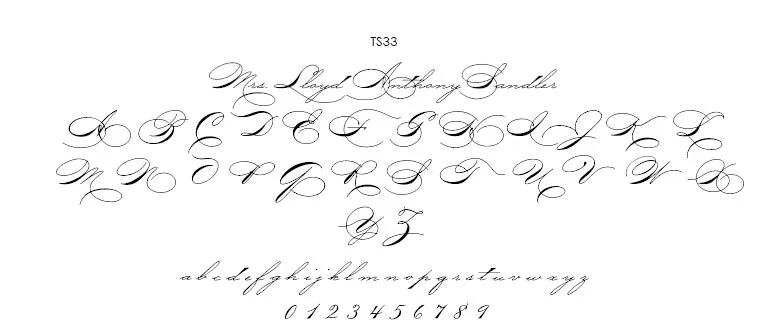 TS33
Mrs. Lloyd Anthony Sandler
A B C D E F G H I J K L
M N O P Q R S T U V W X
Y Z
a b c d e f g h i j k l m n o p q r s t u v w x y z
0 1 2 3 4 5 6 7 8 9